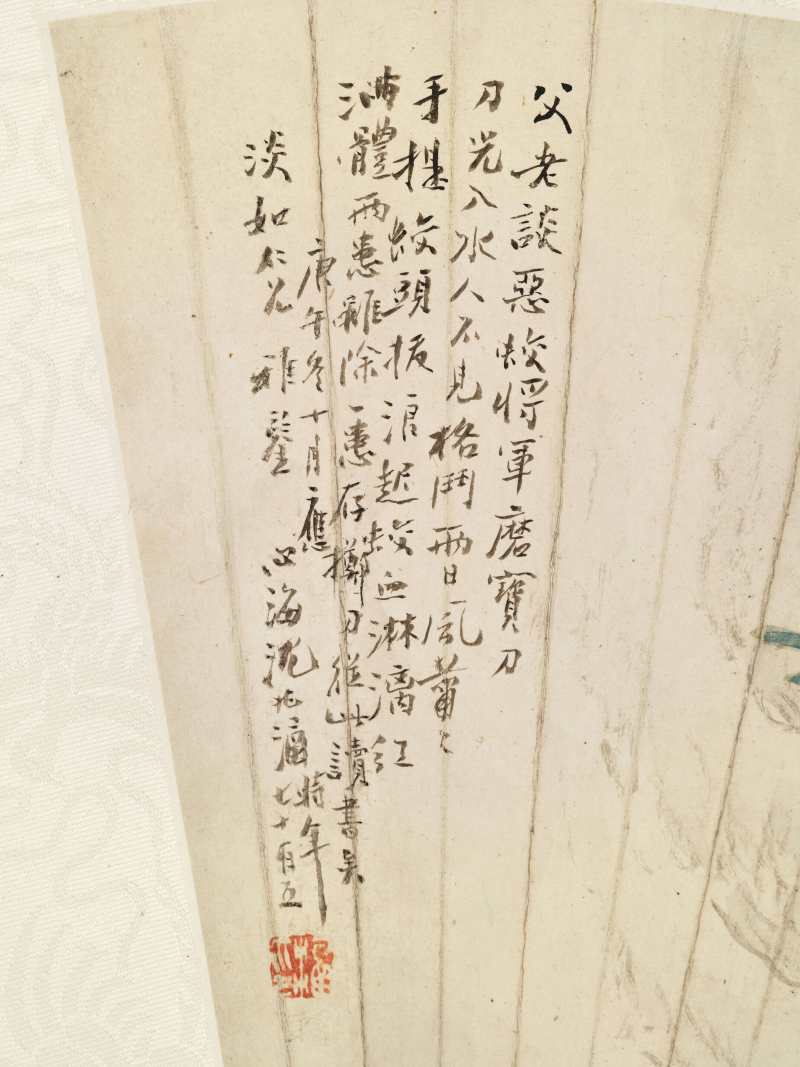 父老談惡蛟將軍磨寶刀
刀光入水人不見格鬥兩日風蕭〻
手提蛟頭拔浪起蛟血淋漓江
滿體兩患雖除一患存擲刀從此讀書矣
庚午冬十月應
淡如仁兄雅鑒
心海沈兆涵時年七十有五